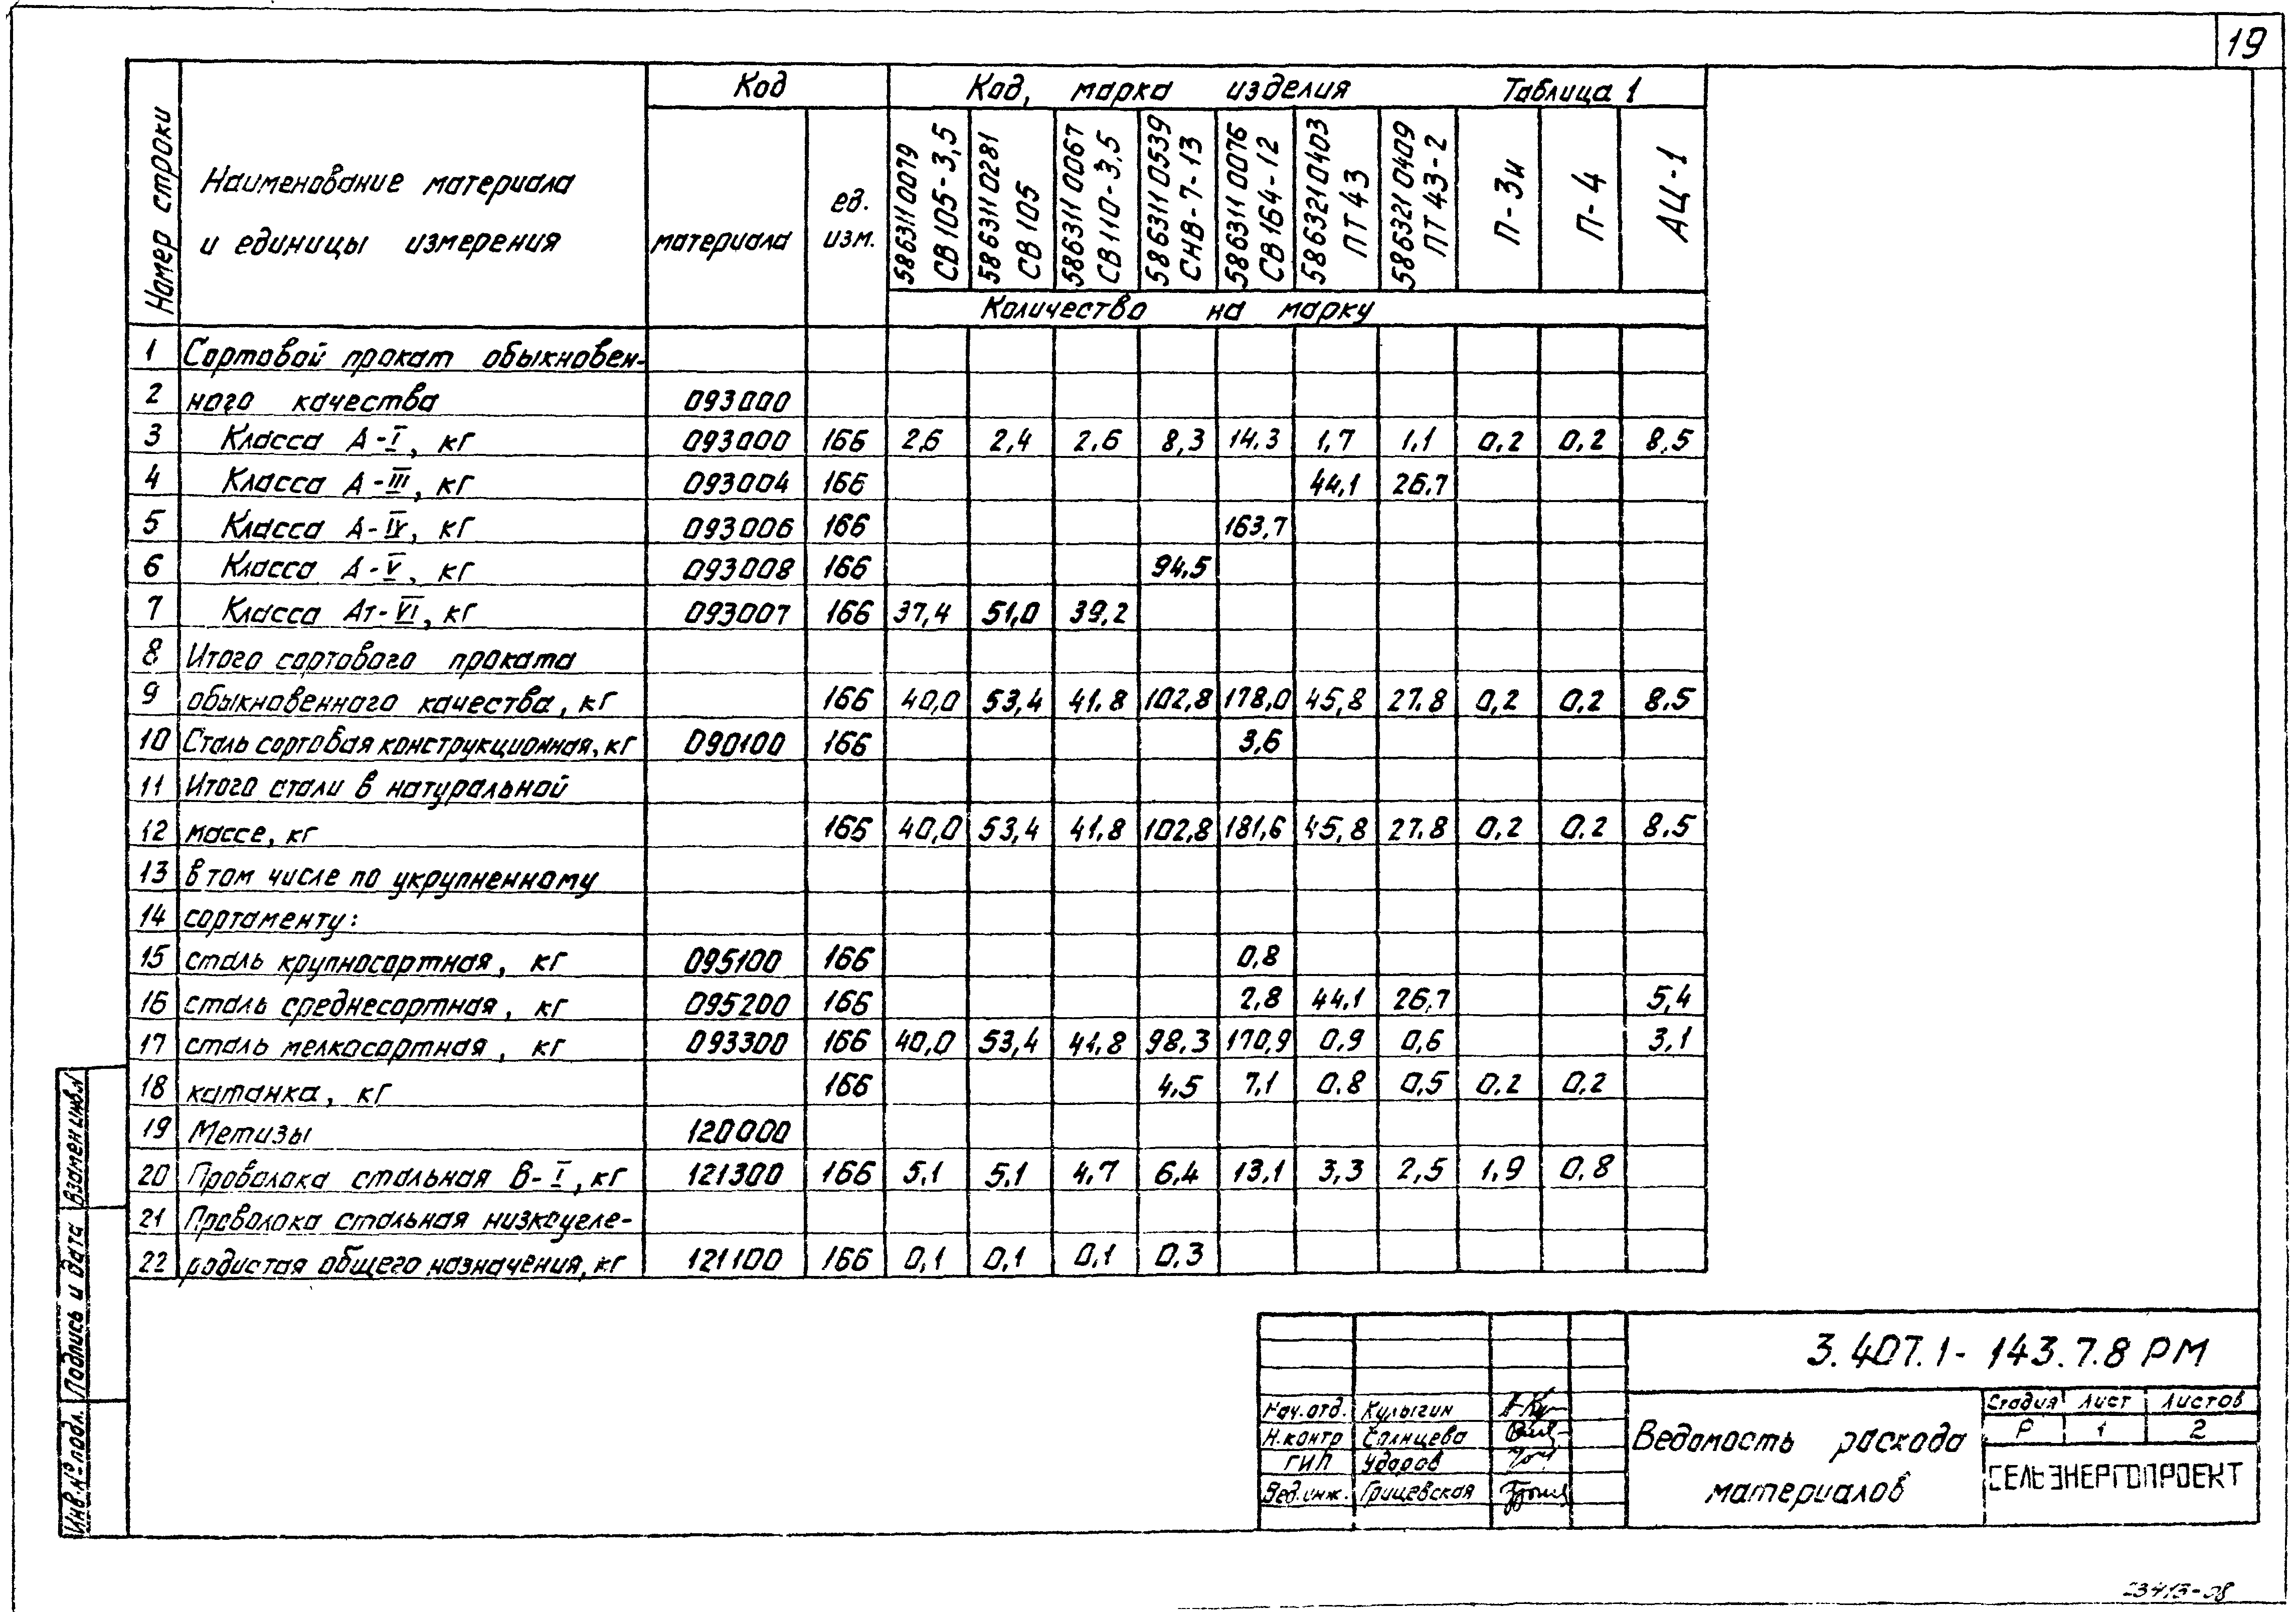 19
Номер строки
Наименование материала
и единицы измерения
Код
материала
ед.
изм.
Код, марка изделия Таблица 1
5863110079
СВ105-3,5
5863110281
СВ105
5863110067
СВ110-3,5
5863110539
СНВ-7-13
5863110076
СВ164-12
5863210403
ПТ43
5863210409
ПТ43-2
П-3и
П-4
АЦ-1
Количество на марку
1 Сортовой прокат обыкновен-
2 ного качества 093000
3 Класса А-I, кг 093000 166 2,6 2,4 2,6 8,3 14.3 1,7 1.1 0,2 0,2 8.5
4 Класса А-III, кг 093004 166 44,1 26.7
5 Класса А-IV, кг 093006 166 163,7
6 Класса А-V, кг 093008 166 94,5
7 Класса Ат-VI, кг 093007 166 37,4 51,0 39,2
8 Итого сортового проката
9 обыкновенного качества, кг 166 40,0 53,4 41.8 102,8 178,0 45,8 27.8 0,2 0.2 8.5
10 Сталь сортовая конструкционная, кг 090100 166 3,6
11 Итого стали в натуральной
12 массе, кг 166 40,0 53,4 41.8 102,8 181,6 45,8 27.8 0.2 0.2 8.5
13 в том числе по укрупненному
14 сортаменту:
15 сталь крупносортная, кг 095100 166 0,8
16 сталь среднесортная, кг 095200 166 2,8 44.1 26,7 5,4
17 сталь мелкосортная, кг 093300 166 40,0 53,4 41,8 98.3 170,9 0,9 0,6 3,1
18 катанка, кг 166 4,5 7,1 0.8 0,5 0.2 0,2
19 Метизы 120000
20 Проволока стальная В-I, кг 121300 166 5,1 5.1 4,7 6,4 13,1 3,3 2,5 1,9 0,8
21 Проволока стальная низкоугле-
22 родистая общего назначения, кг 121100 166 0,1 0,1 0,1 0,3
Взамен инв.№
Подпись и дата
Инв.№ подл.
3.407.1-143.7.8 РМ
Нач.отд. Кулыгин
Н.контр Солнцева
ГИП Ударов
Вед.инж. Грицевская
Ведомость расхода
материалов
Стадия Лист Листов
Р 1 2
СЕЛЬЭНЕРГОПРОЕКТ
23413-08